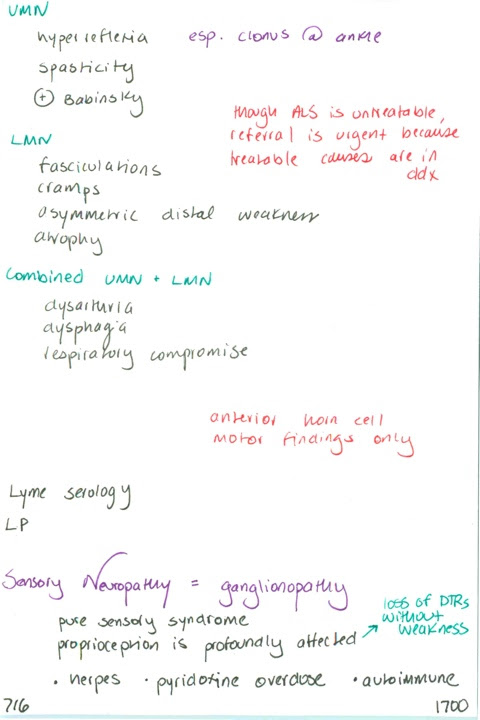 UMN
hyperreflexia esp. clonus @ ankle
spasticity
⊕ Babinsky
though ALS is untreatable,
referral is urgent because
treatable causes are in
ddx
LMN
fasciculations
cramps
asymmetric distal weakness
atrophy
Combined UMN + LMN
dysarthria
dysphagia
respiratory compromise
anterior horn cell
motor findings only
Lyme serology
LP
Sensory Neuropathy = ganglionopathy
pure sensory syndrome
proprioception is profoundly affected ↗
loss of DTRs
without
weakness
• herpes • pyridoxine overdose • autoimmune
716 1700